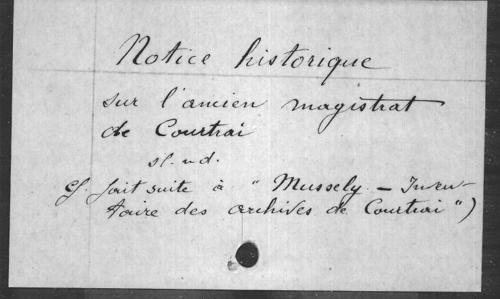 Notice historique
sur l'ancien magistrat
de Courtrai
sl. nd.
cf. fait suite à "Mussely - Inven-
taire des archives de Courtrai")